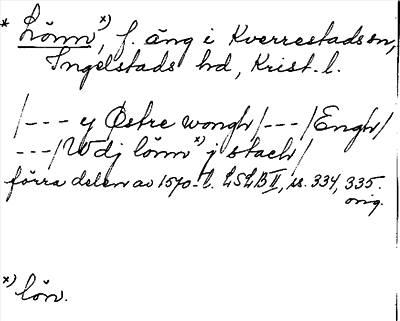 * Lönn x), f. äng i Kverrestads sn,
Ingelstads hd, Krist. l.
/--- y Østre wongh/---/Engh/
---/Wdj lönn x) j stach/
förra delen av 1570-t. LSLB II, ss. 334, 335.
orig.
x) lön.